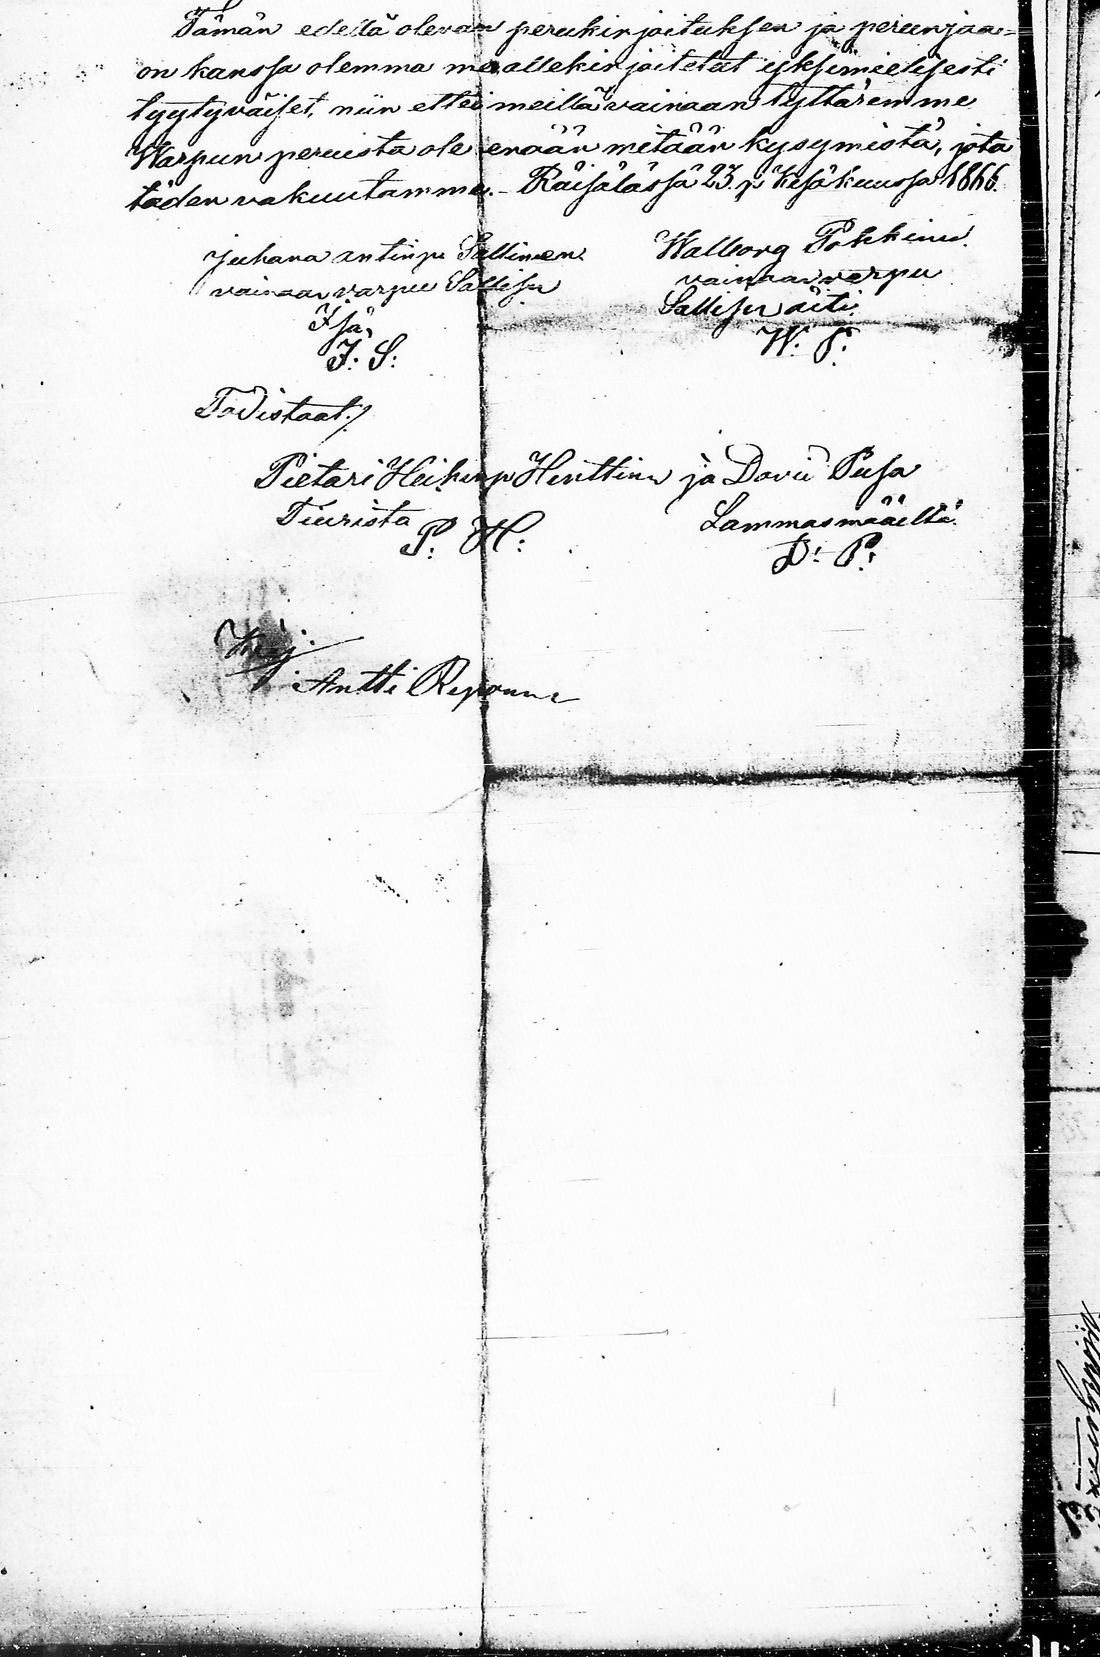 Tämän edellä olevan perukirjoituksen ja perunjaa=
on kanssa olemma me allekirjoitetut yksimielisesti
tyytyväiset, niin ettei meillä vainaan tyttäremme
Warpun peruista ole enään mitään kysymistä, jota
täden vakuutamme. – Räisälässä 23 p Kesäkuussa 1866.
Juhana antinp Sallinen Walborg Pokkinen
vainaan varpu Sallisen vainaan varpu
Isä, Sallisen äiti
J: S: W: P:
Todistaat:/
Pietari Heikinp Henttinen ja Davii Pusa
Tiurista Lammasmäeltä
P: H: D: P:
Kirj:
Antti Reponen